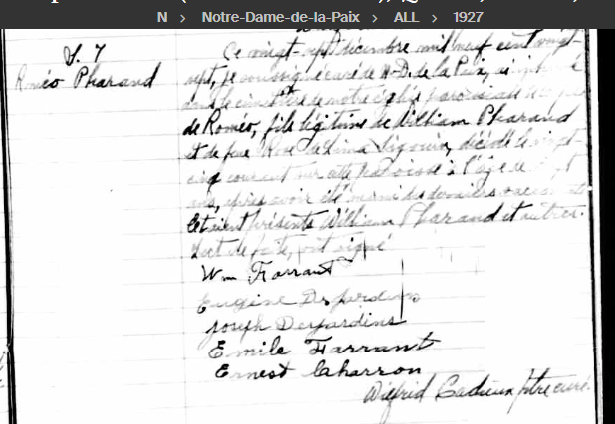 N > Notre-Dame-de-la-Paix > ALL > 1927
S. 7
Roméo Pharand
Ce vingt-sept décembre mil neuf cent vingt-
sept, je soussigné curé de N.D. de la Paix, ai inhumé
dans le cimetière de notre église paroissiale le corps
de Roméo, fils légitime de William Pharand
et de feue Rose de Lima décédé le vingt-
cinq courant sur cette paroisse à l'âge de vingt
ans, après avoir été muni des derniers sacrements
Étaient présents William Pharand et autres.
dont de faite, ont signé
Wm Farrant
Eugène Desjardins
Joseph Desjardins
Emile Farrant
Ernest Charron
Wilfrid Cadieux ptre curé.